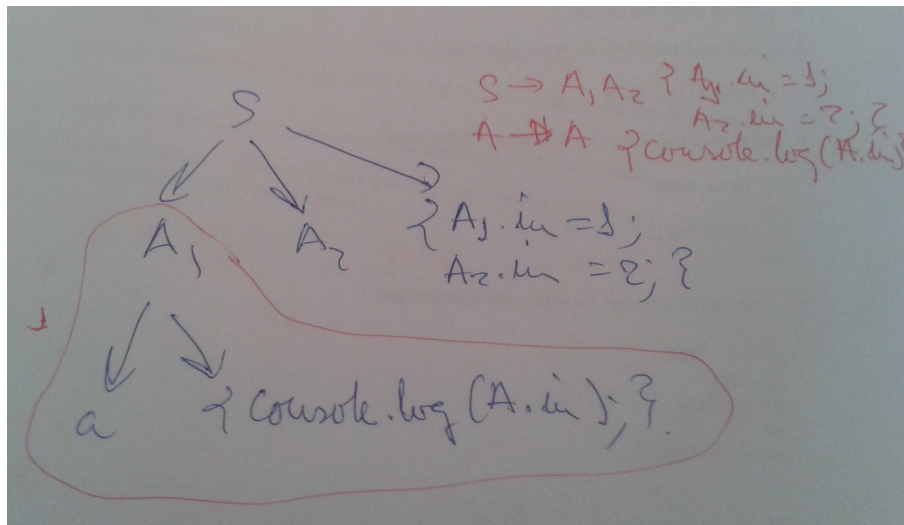 S → A₁ A₂ { A₁.in = 1;
A₂.in = 2; }
A → A { console.log(A.in)
S
A₁ A₂ { A₁.in = 1;
A₂.in = 2; }
1
a { console.log (A.in); }.